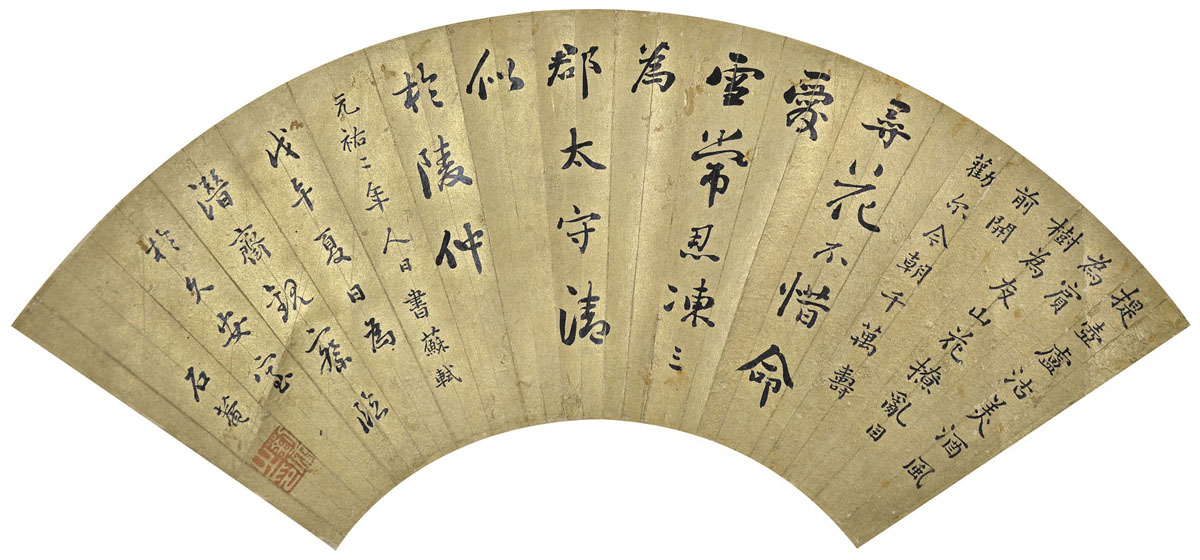 提壺盧沽美酒風
為賓
樹為友山花撩亂目
前開
勸尔今朝千萬壽
尋花不惜命
愛
雪常思凍三
為
郡太守清
似
於陵仲
元祐二年人日書蘇軾
戊午夏日為臨
潛齋親
於久安室
石菴